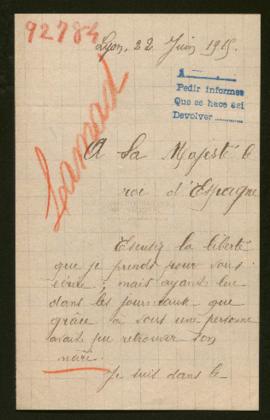 92784
Lyon, 22 Juin 1915.
Pedir informes
Que se hace asi
Devolver
A Sa Majesté le
roi d'Espagne
Excusez la liberté
que je prends pour vous
écrire ; mais ayant lu
dans les journaux que
grâce à vous une personne
avait pu retrouver son
mari.
Je suis dans le